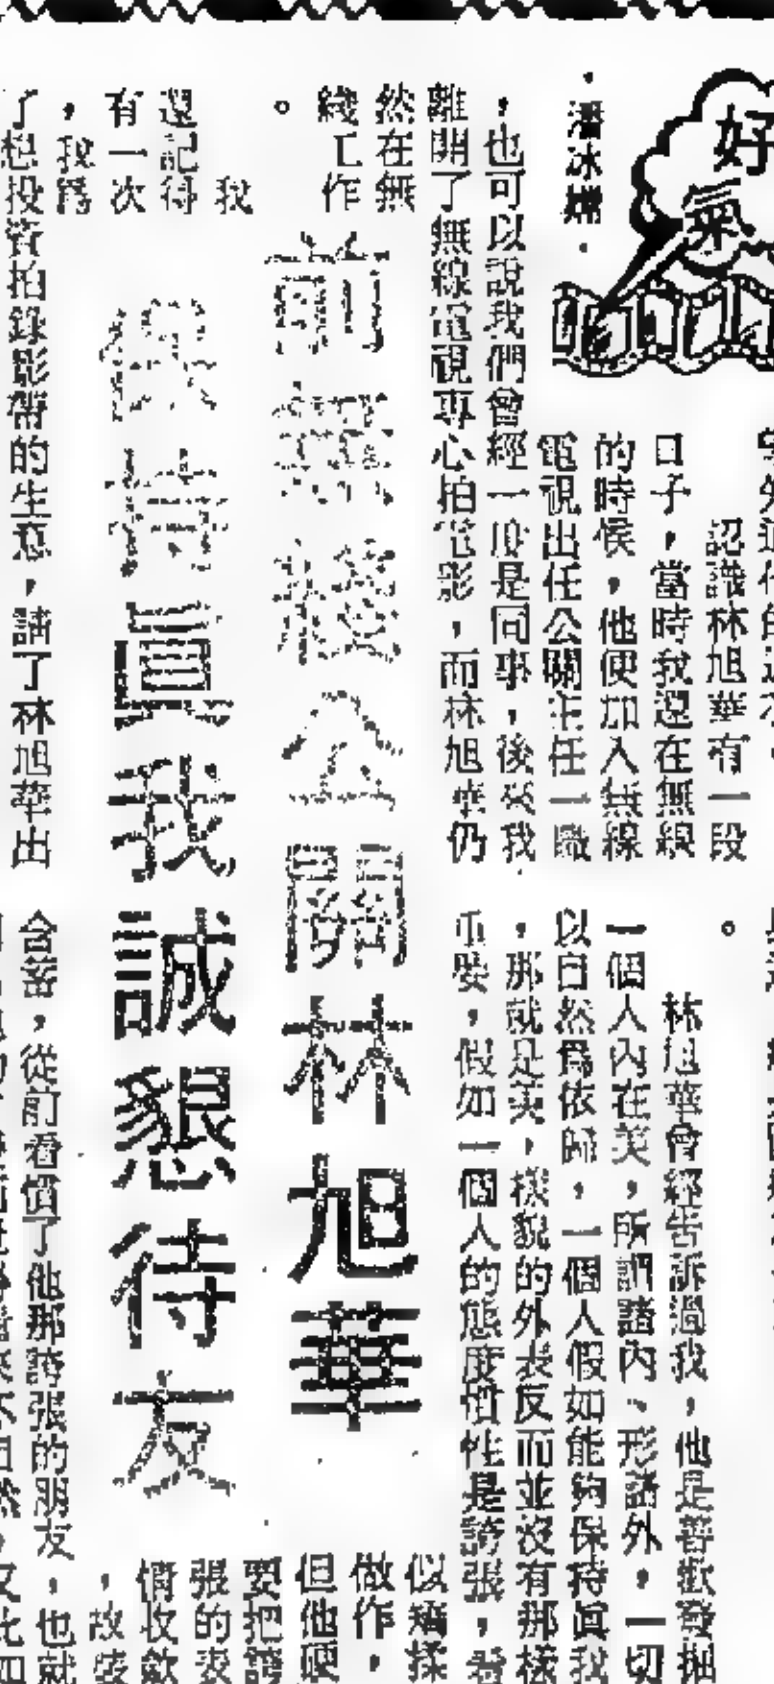 好
氣
·潘冰嫦·
認識林旭華有一段
日子，當時我還在無線
的時候，他便加入無線
電視出任公關主任一職
，也可以說我們曾經一度是同事，後來我
離開了無線電視專心拍電影，而林旭華仍
然在無
綫工作
。
前無綫公關林旭華
保持眞我誠懇待友
我
還記得
有一次
，我爲
了想投資拍錄影帶的生意，請了林旭華出
。
林旭華曾經告訴過我，他是喜歡發掘
一個人內在美，所謂諸內、形諸外，一切
以自然爲依歸，一個人假如能夠保持眞我
，那就是美，樣貌的外表反而並沒有那樣
重要，假如一個人的態度慣性是誇張，看
似矯揉
做作，
但他硬
要把誇
張的表
情收歛
，故裝
含蓄，從前看慣了他那誇張的朋友，也就